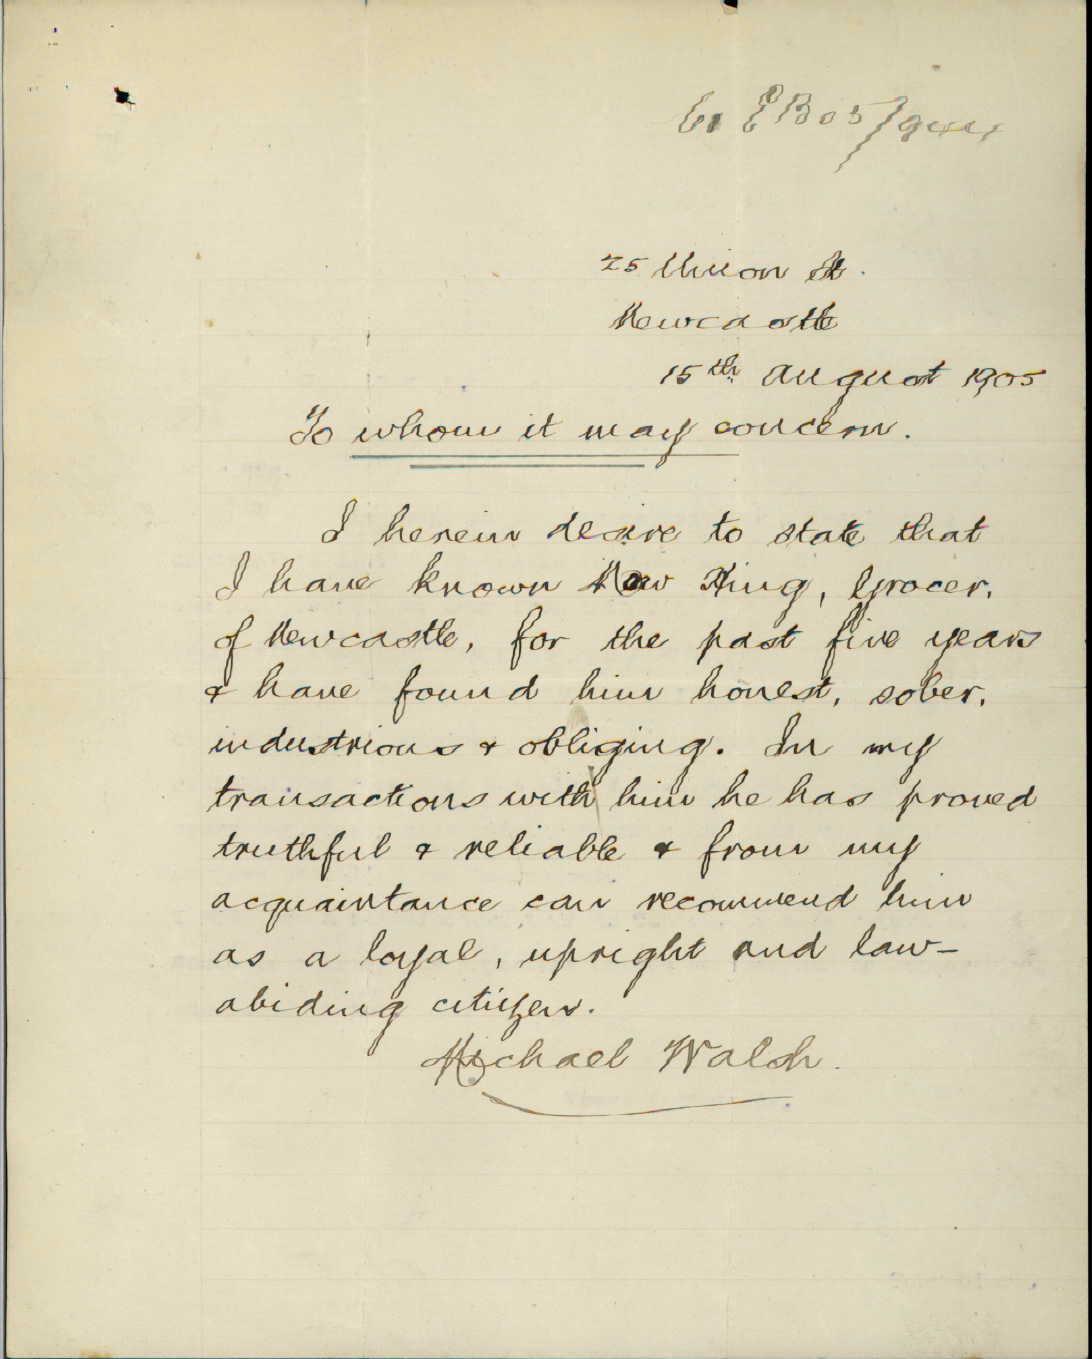 25 Union St.
Newcastle
15th August 1905
To whom it may concern.
I herein desire to state that
I have known King, Grocer,
of Newcastle, for the past five years
& have found him honest, sober,
industrious & obliging. In my
transactions with him he has proved
truthful & reliable & from my
acquaintance can recommend him
as a loyal, upright and law-
abiding citizen.
Michael Walsh.